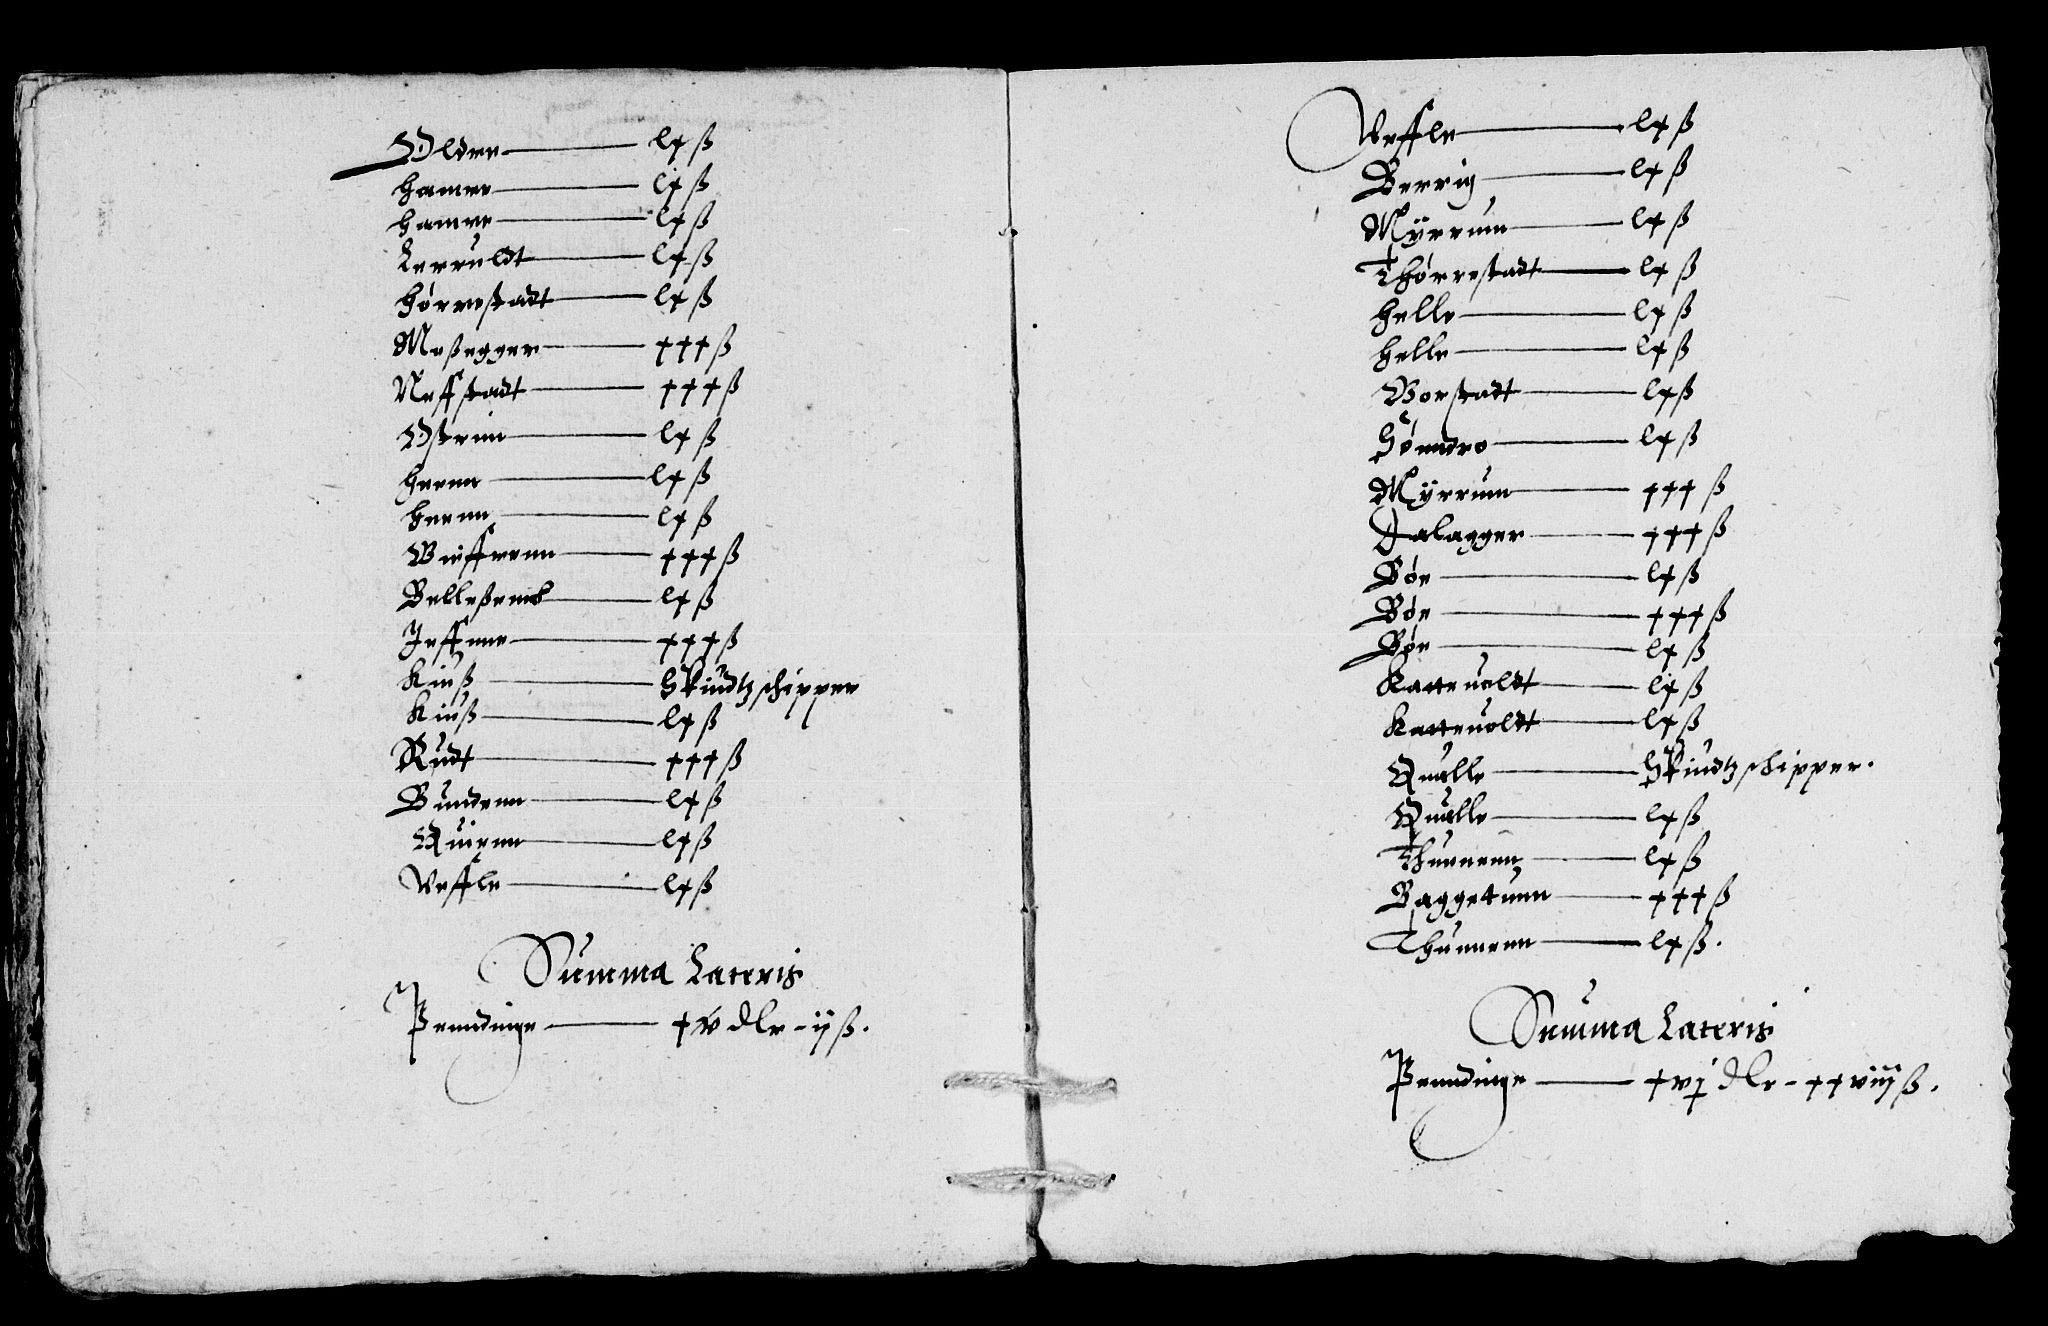 Oldere — lx ß
hamre — lx ß
hamre — lx ß
Lerruldt — lx ß
hørrestadt — lx ß
Meßegger — xxx ß
Neffstadt — xxx ß
Ostrim — lx ß
heenn — lx ß
heenn — lx ß
Bießvenn — xxx ß
Belleßenn — lx ß
Jeffnne — xxx ß
Kiuß — Skiudtzschipper
Kiuß — lx ß
Rudt — xxx ß
Bundenn — lx ß
Quienn — lx ß
Veffle — lx ß
Summa Lateris
Penndinge — xv dlr - ij ß.
Veffle — lx ß
Berrig — lx ß
Myrrum — lx ß
Thørrestadt — lx ß
helle — lx ß
helle — lx ß
Vorstadt — lx ß
Søendro — lx ß
Myrrum — xxx ß
Dalagger — xxx ß
Bøe — lx ß
Bøe — xxx ß
Bøe — lx ß
Katteuoldt — lx ß
Katteuoldt — lx ß
Qualle — Skiudtzschipper.
Qualle — lx ß
Thunenn — lx ß
Baggetunn — xxx ß
Thunnenn — lx ß.
Summa Lateris
Penndinge — xvj dlr - xxviij ß.